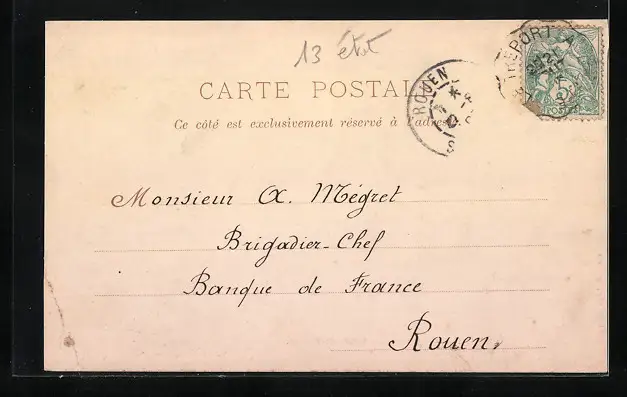 13 état
TREPORT A
ROUEN
CARTE POSTAL
Ce côté est exclusivement réservé à l'adres
Monsieur A. Mégret
Brigadier-Chef
Banque de France
Rouen.